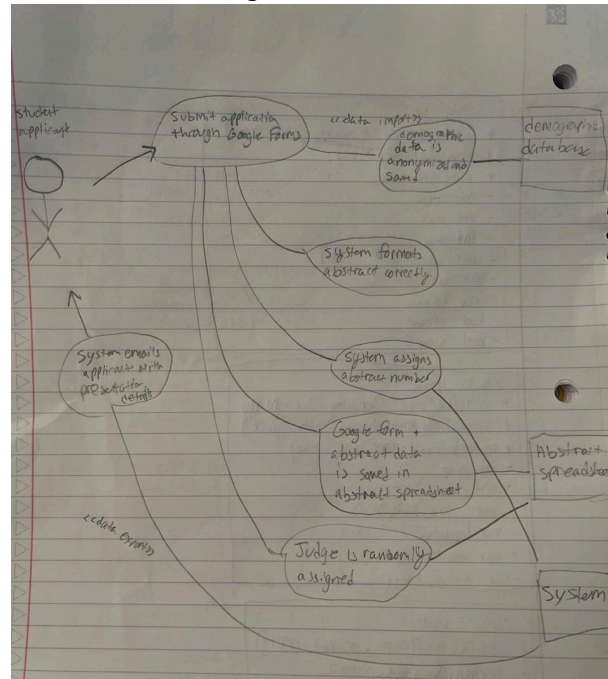 student
applicant
Submit application
through Google Forms
<<data import>>
demographic
data is
anonymized and
saved
demographic
database
System formats
abstract correctly
System emails
applicants with
presentation
details
System assigns
abstract number
Google form +
abstract data
is saved in
abstract spreadsheet
Abstract
spreadsheet
<<data export>>
Judge is randomly
assigned
System